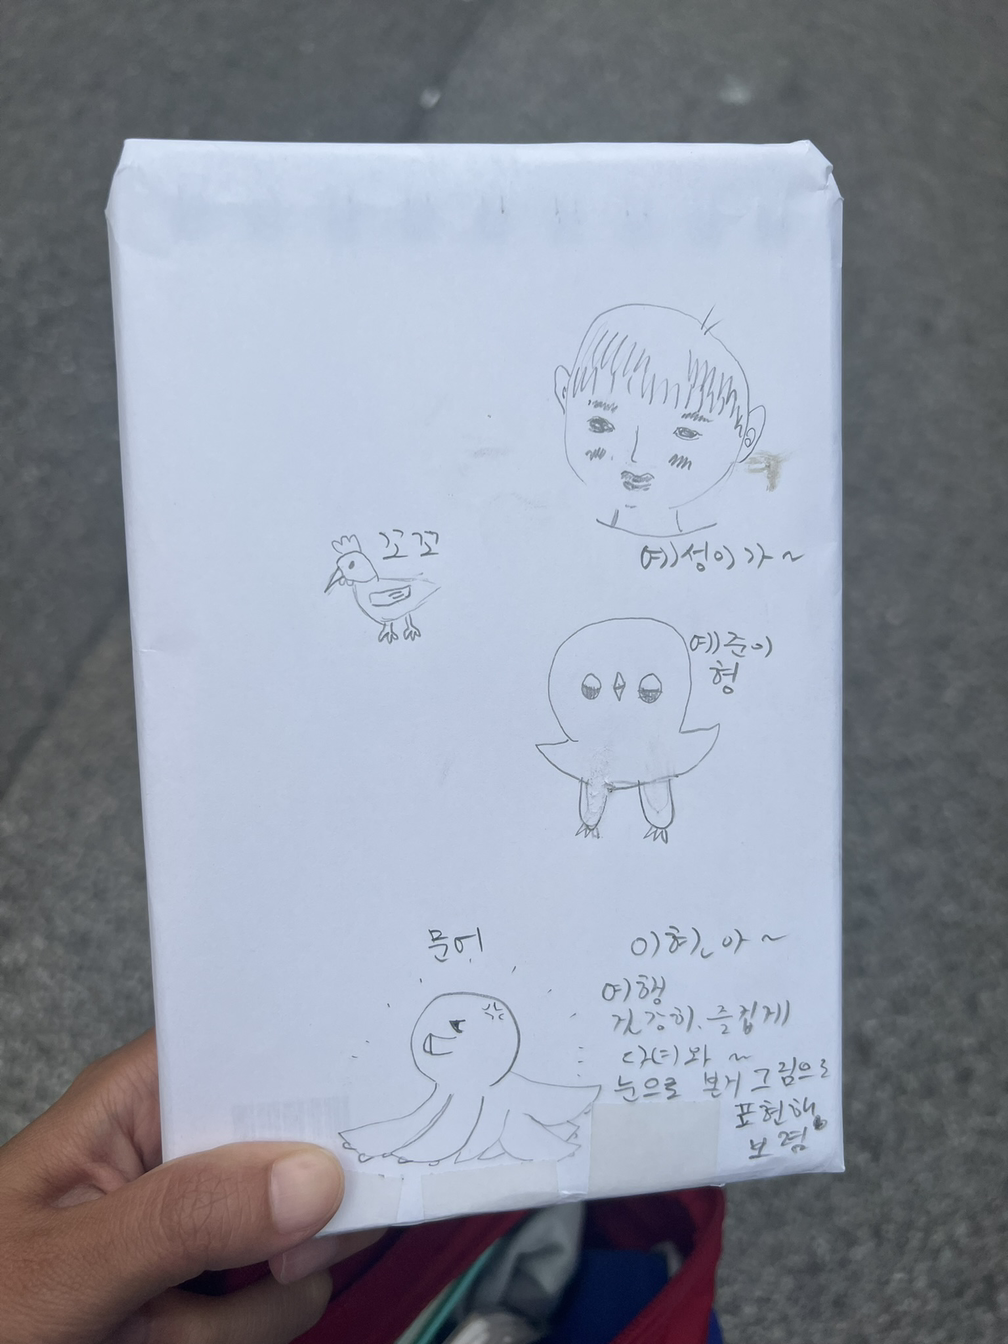 꼬꼬
예성이가~
예준이
형
문어
이현아~
여행
건강히. 즐겁게
다녀와~
눈으로 본거 그림으로
표현해
보렴